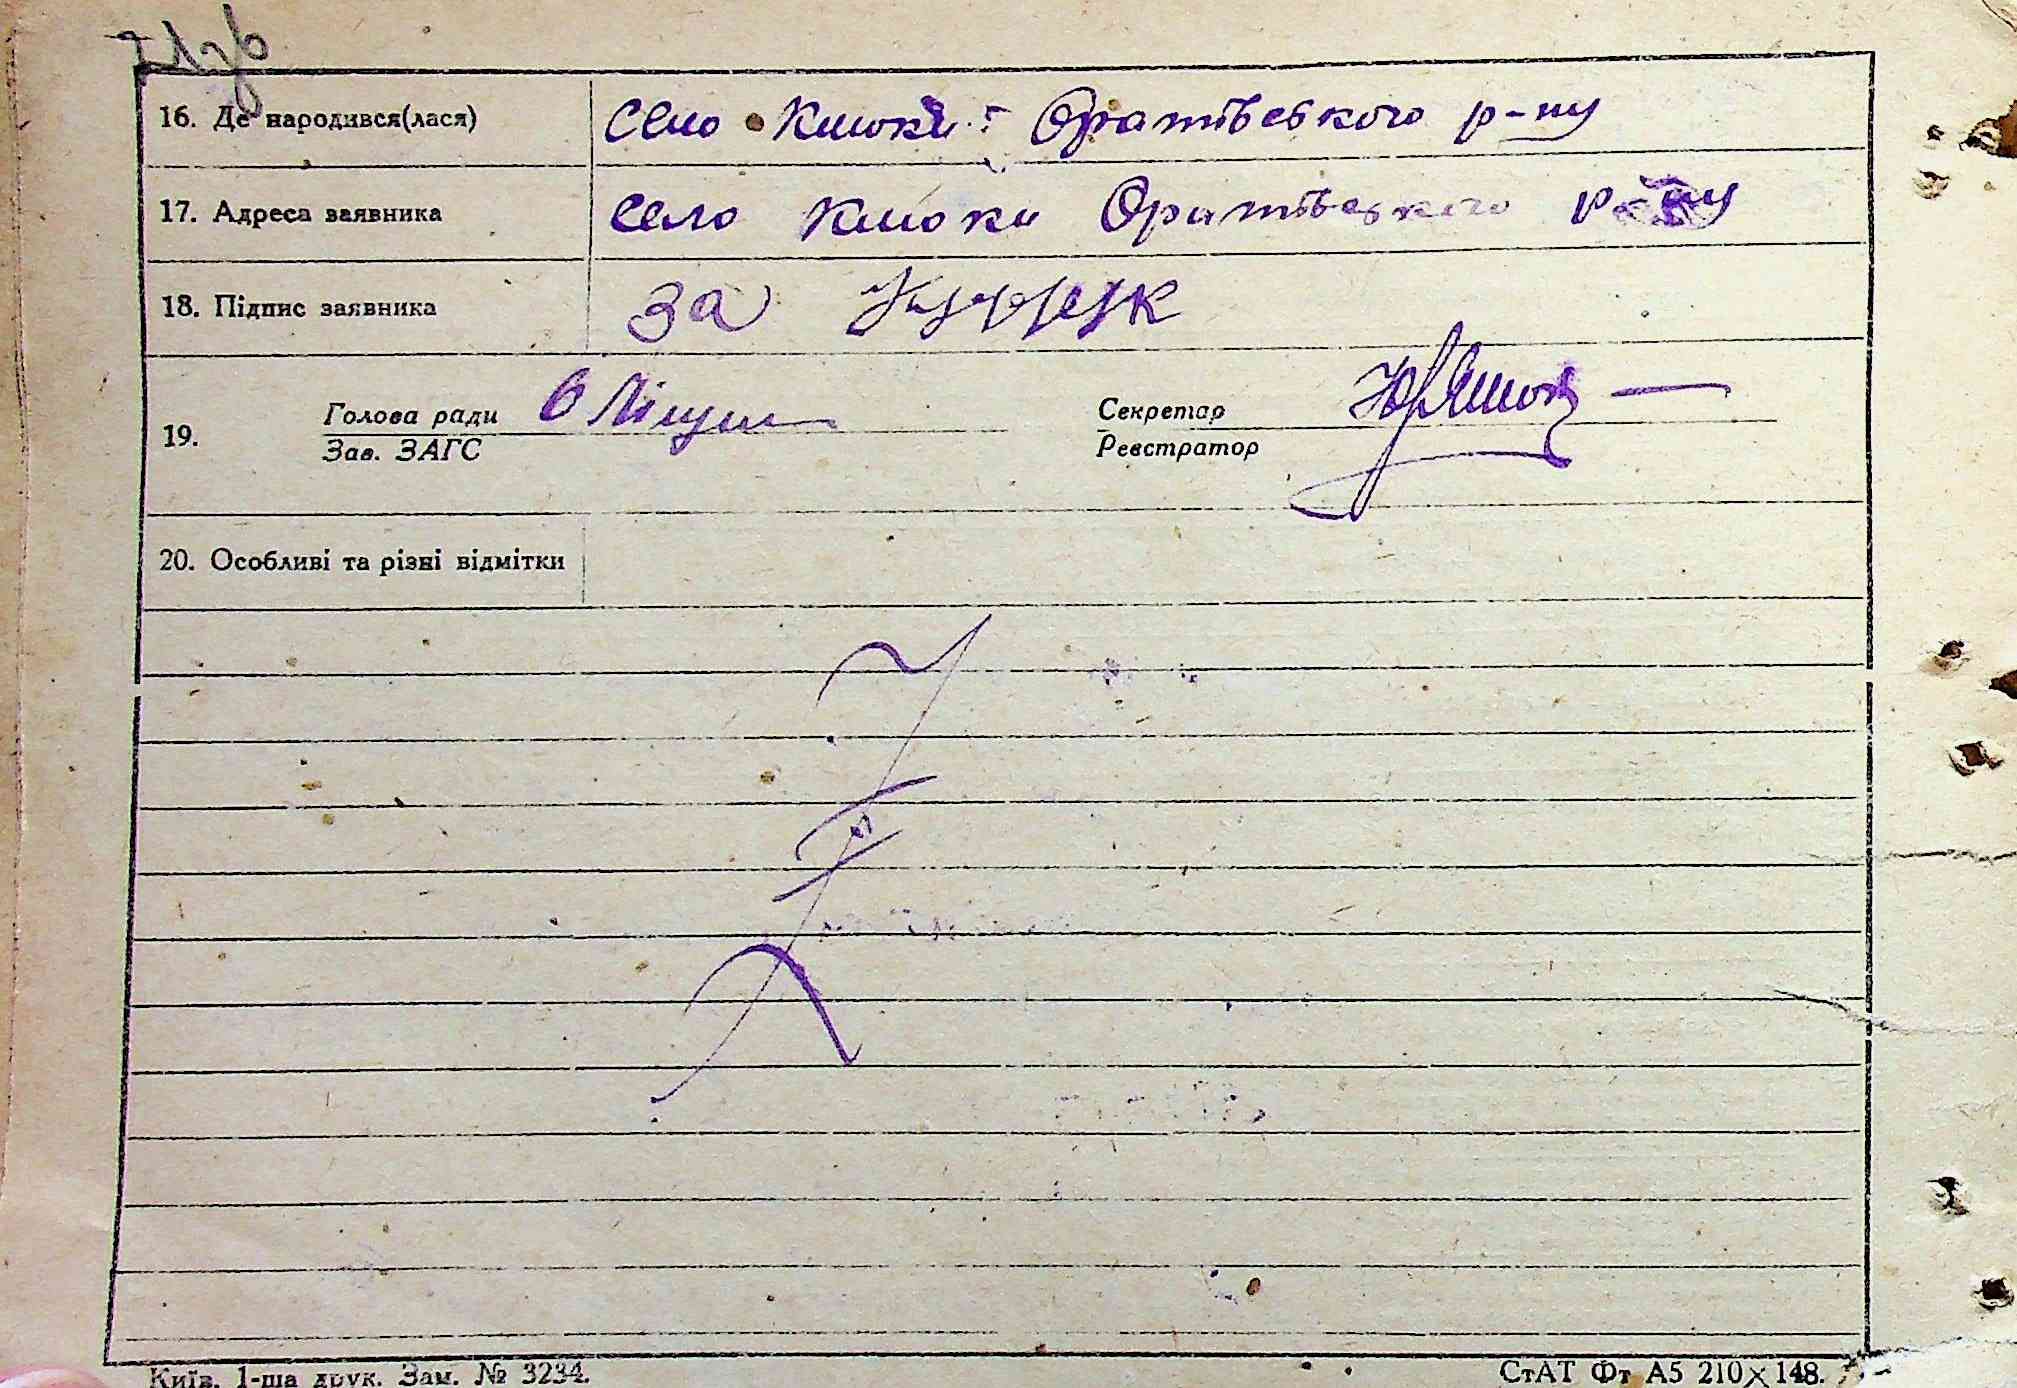 16. Де народився(лася) село Клюки Оратівського р-ну
17. Адреса заявника село Клюки Оратівського р-ну
18. Підпис заявника за
19. Голова ради Секретар
Зав. ЗАГС Реєстратор
20. Особливі та різні відмітки
Київ, 1-ша друк. Зам. № 3234. СтАТ Фт А5 210×148.